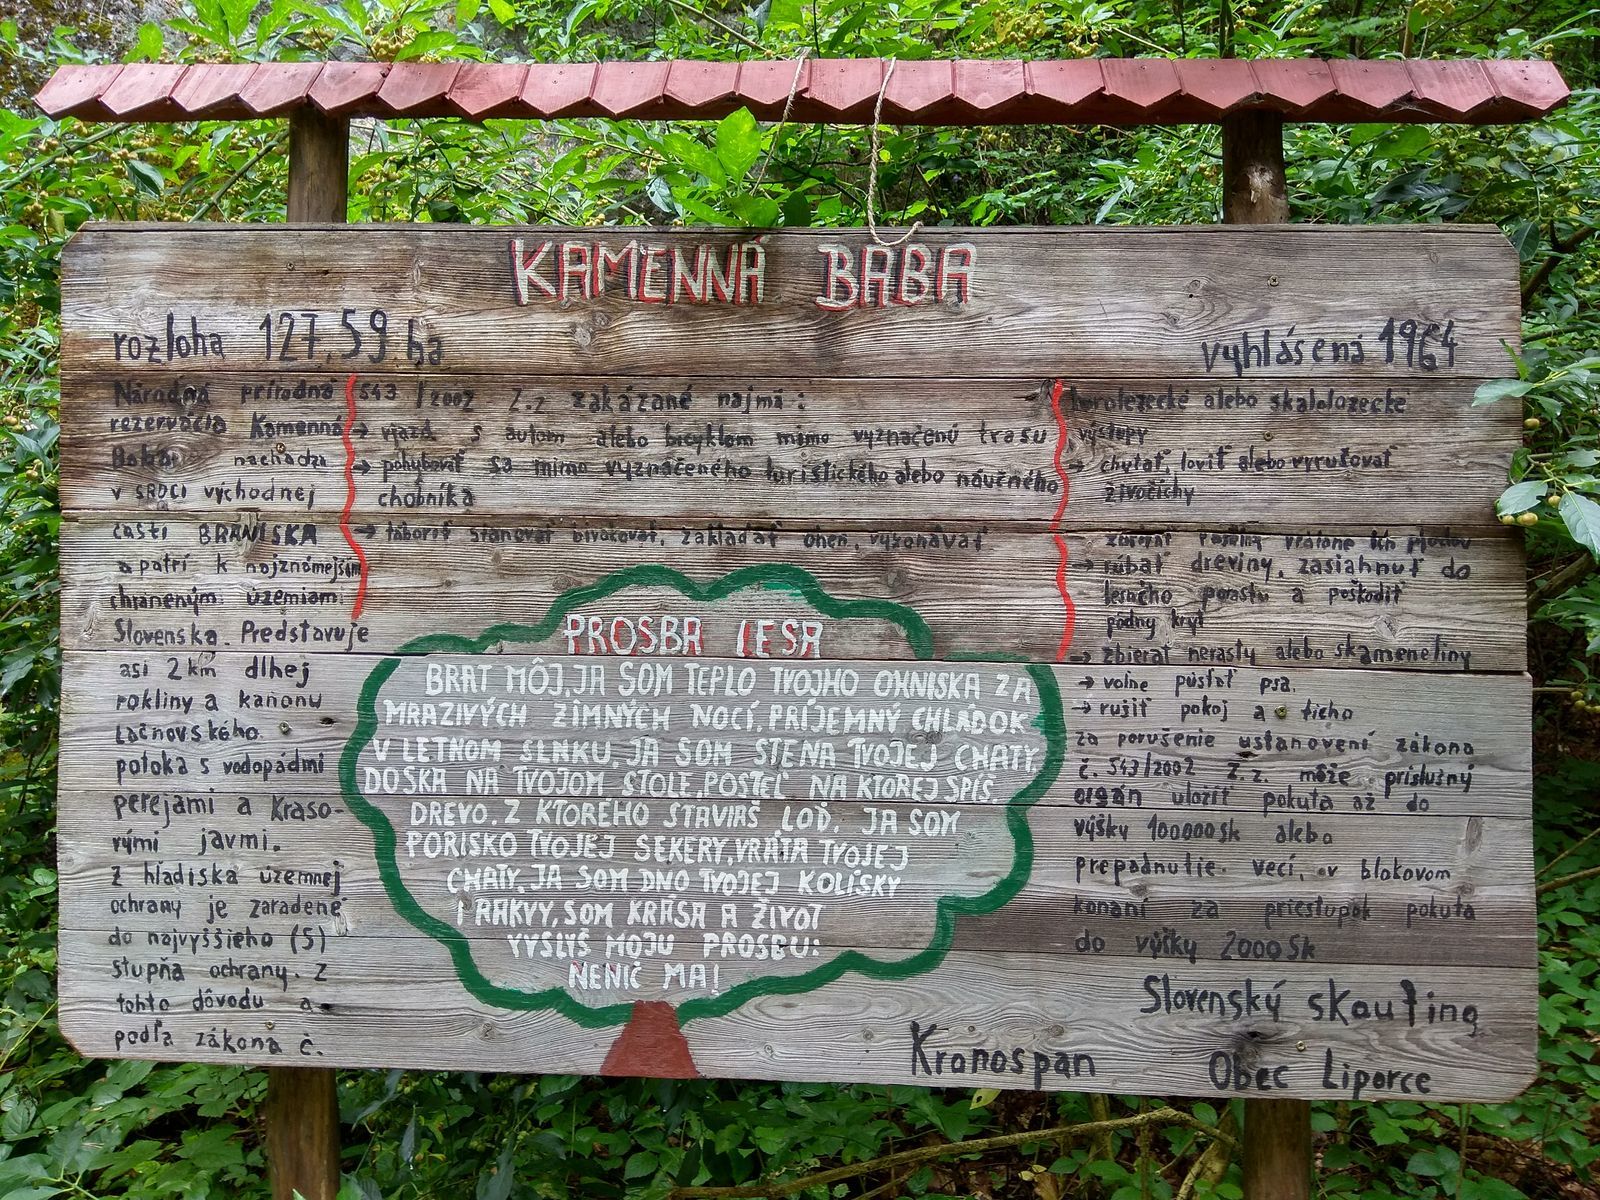 KAMENNÁ BABA
rozloha 127,59 ha
vyhlásená 1964
Národná prírodná
rezervácia Kamenná
Baba nachádza
v SRDCI východnej
časti BRANISKA
a patrí k najznámejším
chráneným územiam
Slovenska. Predstavuje
asi 2 km dlhej
rokliny a kaňonu
Lačnovského
potoka s vodopádmi
perejami a Kraso-
vými javmi.
Z hľadiska územnej
ochrany je zaradené
do najvyššieho (5)
stupňa ochrany. Z
tohto dôvodu a
podľa zákona č.
543/2002 Z.z zakázané najmä:
→ vjazd s autom alebo bicyklom mimo vyznačenú trasu
→ pohybovať sa mimo vyznačeného turistického alebo náučného
chodníka
→ táboriť stanovať bivakovať, zakladať oheň, vykonávať
horolezecké alebo skalolozecke
výstupy
→ chytať, loviť alebo vyrušovať
živočíchy
zbierať rastliny vrátane ich plodov
→ rúbať dreviny, zasiahnuť do
lesného porastu a poškodiť
pôdny kryt
→ zbierať nerasty alebo skameneliny
→ voľne púšťať psa.
→ rušiť pokoj a ticho
za porušenie ustanovení zákona
č. 543/2002 Z.z. môže príslušný
orgán uložiť pokuta až do
výšky 100000sk alebo
prepadnutie vecí, v blokovom
konaní za priestupok pokuta
do výšky 2000 Sk
PROSBA LESA
BRAT MÔJ, JA SOM TEPLO TVOJHO OHNISKA ZA
MRAZIVÝCH ZIMNÝCH NOCÍ, PRÍJEMNÝ CHLÁDOK
V LETNOM SLNKU, JA SOM STENA TVOJEJ CHATY,
DOSKA NA TVOJOM STOLE, POSTEĽ NA KTOREJ SPÍŠ,
DREVO, Z KTORÉHO STAVIAŠ LOĎ, JA SOM
PORISKO TVOJEJ SEKERY, VRÁTA TVOJEJ
CHATY, JA SOM DNO TVOJEJ KOLÍSKY
I RAKVY, SOM KRÁSA A ŽIVOT
VYSLYŠ MOJU PROSBU:
NENIČ MA!
Slovenský skauting
Kronospan Obec Lipovce